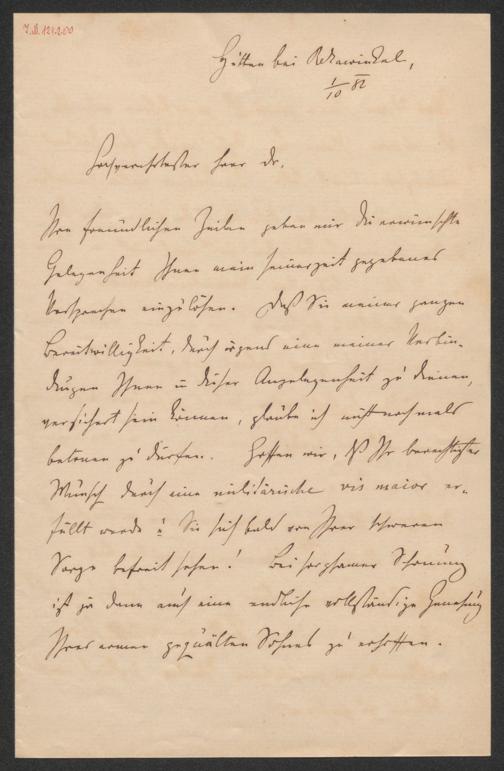 J.N. 121.200
Hütten bei Rekawinkel,
1/10 82
Hochverehrtester Herr Dr.
Ihre freundlichen Zeilen geben mir die erwünschte
Gelegenheit Ihnen mein seinerzeit gegebenes
Versprechen einzulösen. Daß Sie meiner ganzen
Bereitwilligkeit, durch irgend eine meiner Verbin-
dungen Ihnen in dieser Angelegenheit zu dienen,
versichert sein können, glaube ich nicht nochmals
betonen zu dürfen. Hoffen wir, daß Ihr berechtigter
Wunsch durch eine militärische vis maior er-
füllt werde u Sie sich bald von Ihrer schweren
Sorge befreit sehen! Bei sorgsamer Schonung
ist ja dann auch eine endliche vollständige Genesung
Ihres armen gequälten Sohnes zu erhoffen.